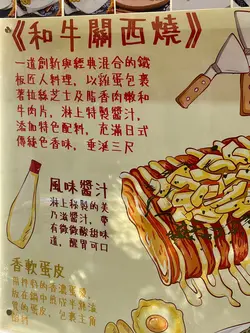 《和牛關西燒》
一道創新與經典混合的鐵
板匠人料理,以雞蛋包裹
著拉絲芝士及脂香肉嫩和
牛肉片,淋上特製醬汁,
添加特色配料,充滿日式
傳統色香味,垂涎三尺
風味醬汁
淋上秘製的美
乃滋醬汁,帶
有微微酸甜味
道,醒胃可口
香軟蛋皮